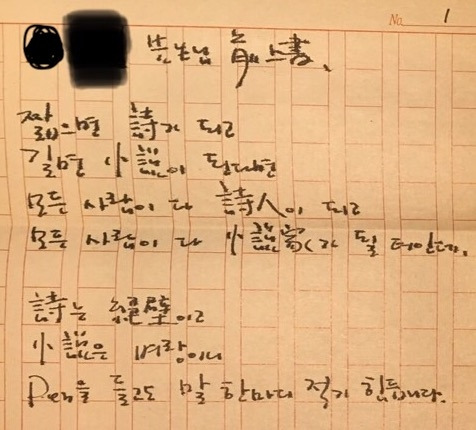 No. 1
前上書,
짧으면 詩가 되고
길면 小說이 된다면
모든 사람이 다 詩人이 되고
모든 사람이 다 小說家가 될 터인데,
詩는 絶壁이고
小說은 벼랑이니
Pen을 들고도 말 한마디 적기 힘듭니다.